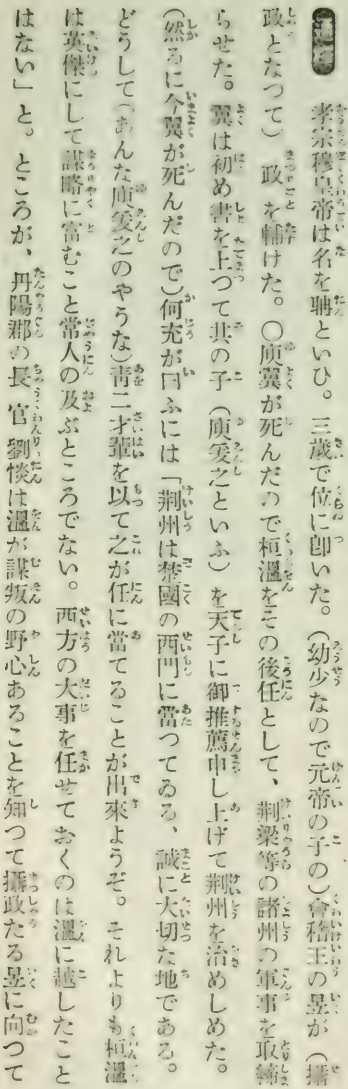 通釋 孝宗穆皇帝は名を聃といひ。三歳で位に卽いた。(幼少なので元帝の子の)會稽王の昱が(攝
政となつて)政を輔けた。〇庾翼が死んだので桓溫をその後任として、荆梁等の諸州の軍事を取締
らせた。翼は初め書を上つて其の子(庾爰之といふ)を天子に御推薦申し上げて荆州を治めしめた。
(然るに今翼が死んだので)何充が曰ふには「荆州は楚國の西門に當つてゐる、誠に大切な地である。
どうして(あんな庾爰之のやうな)靑二才輩を以て之が任に當てることが出來ようぞ。それよりも桓溫
は英傑にして謀略に富むこと常人の及ぶところでない。西方の大事を任せておくのは溫に越したこと
はない」と。ところが、丹陽郡の長官劉惔は溫が謀叛の野心あることを知つて攝政たる昱に向つて